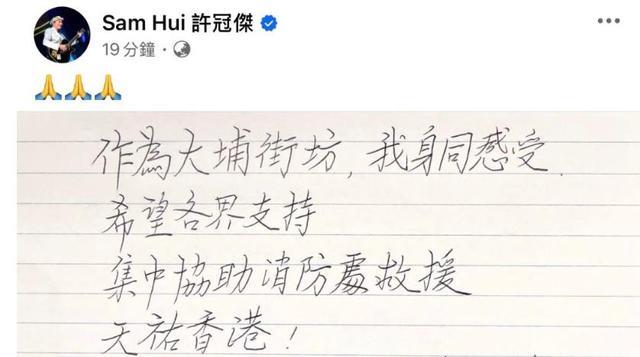 Sam Hui 許冠傑
19 分鐘 ·
🙏🙏🙏
作為大埔街坊, 我身同感受.
希望各界支持
集中協助消防處救援
天祐香港!